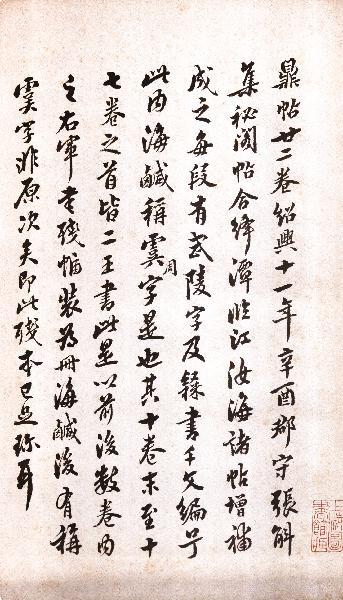 鼎帖廿二卷紹興十一年辛酉郡守張斛
集秘閣帖合絳潭臨江汝海諸帖增補
成之每段有武陵字及隸書千文編號
此內海鹹稱雲周字是也其十卷末至十
七卷之首皆二王書此是以前後數卷內
之右軍書殘幅裝為冊海鹹後有稱
雲字非原次矣即此殘本已足珍耳